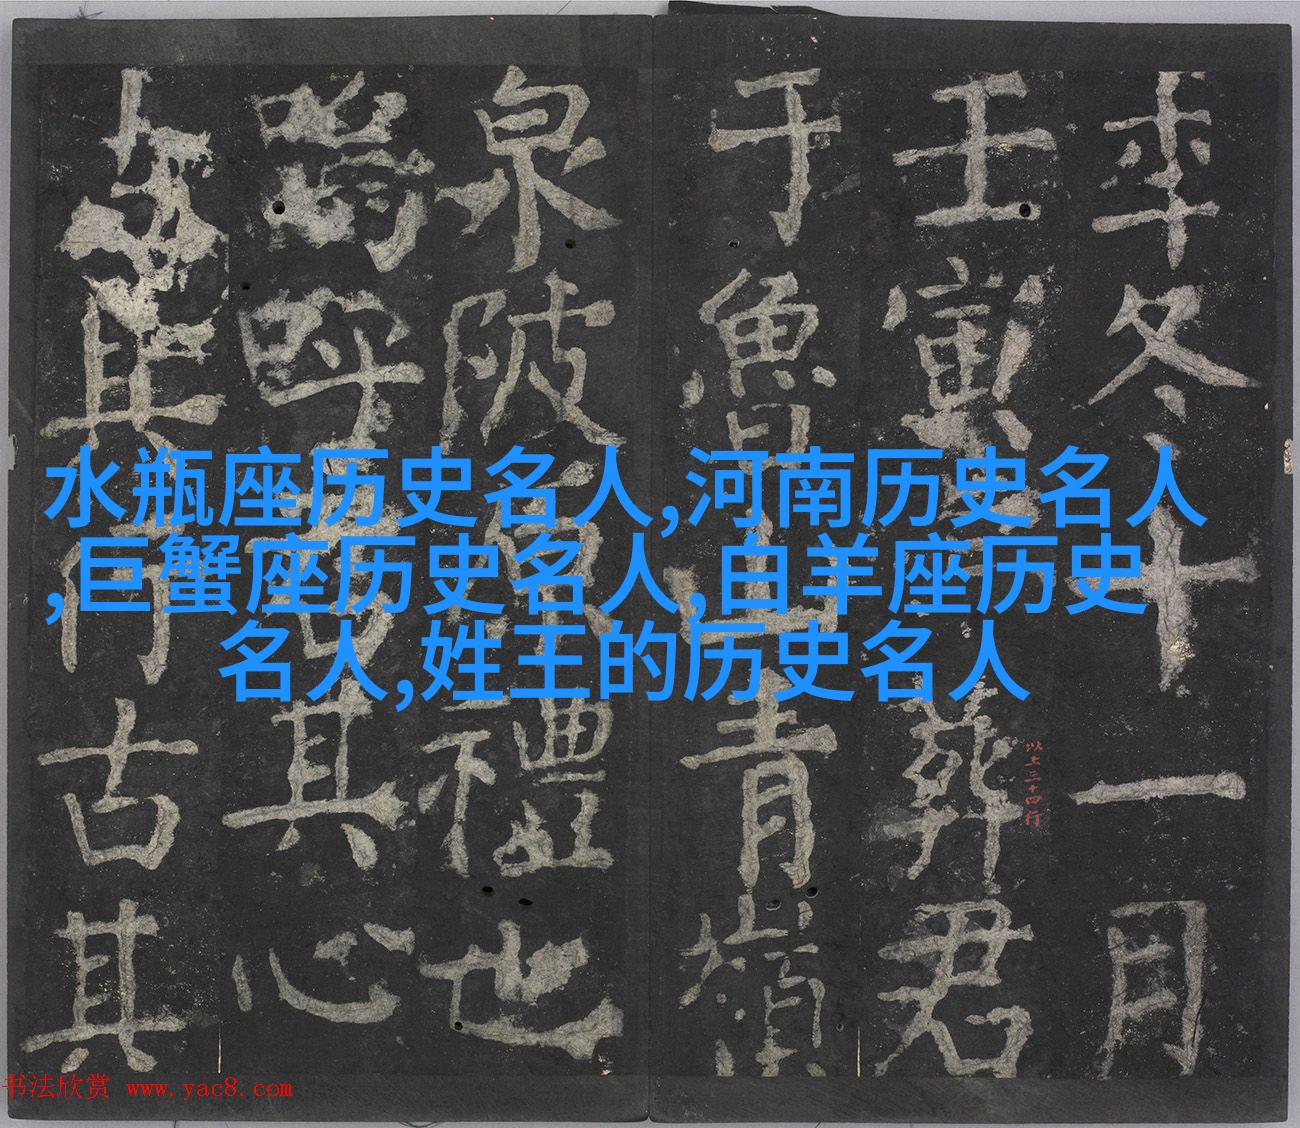 年冬十一月
壬寅葬君
以上三十四行
于魯山青嶺
泉陂原禮也
嗚呼其心
古其行古其
水瓶座历史名人,河南历史名人
,巨蟹座历史名人,白羊座历史
名人,姓王的历史名人
书法欣赏 www.yac8.com